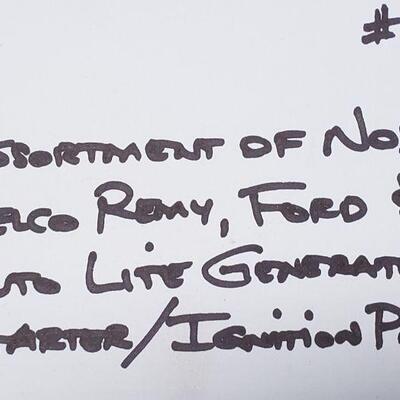 #
ssortment of Nos
elco Remy, Ford &
uto Lite Generat
tarter/Ignition P